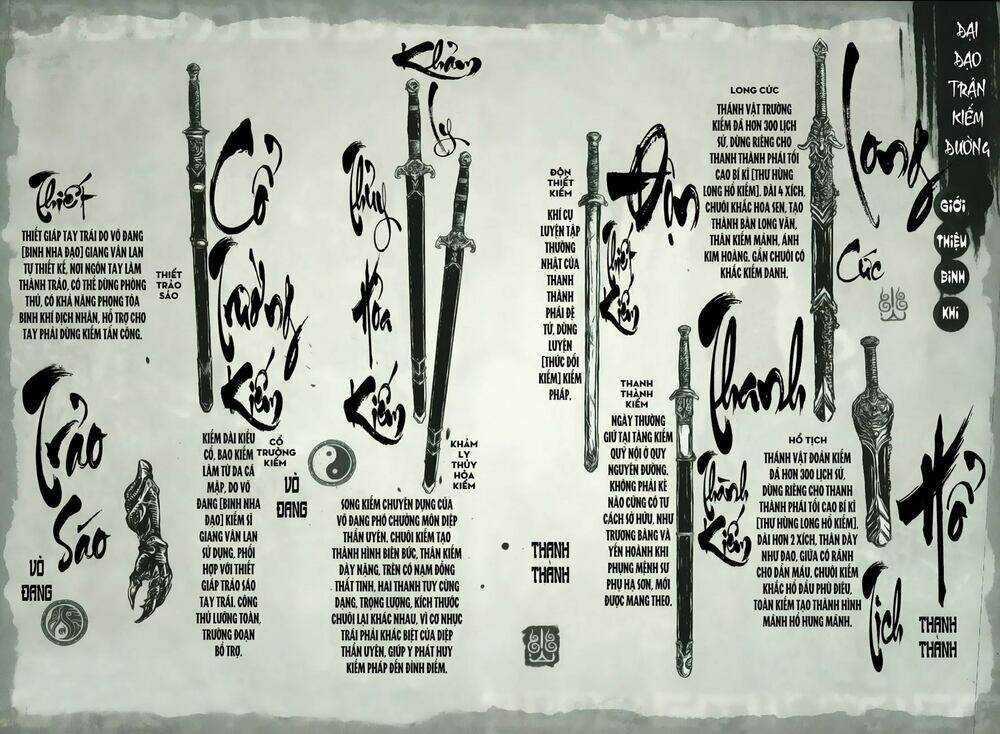 ĐẠI
ĐẠO
TRẬN
KIẾM
ĐƯỜNG
GIỚI
THIỆU
BINH
KHÍ
Long
Cức
LONG CỨC
THÁNH VẬT TRƯỜNG
KIẾM ĐÃ HƠN 300 LỊCH
SỬ, DÙNG RIÊNG CHO
THANH THÀNH PHÁI TỐI
CAO BÍ KĨ [THƯ HÙNG
LONG HỔ KIẾM]. DÀI 4 XÍCH,
CHUÔI KHẮC HOA SEN, TẠO
THÀNH BÀN LONG VÂN,
THÂN KIẾM MẢNH, ÁNH
KIM HOÀNG, GẦN CHUÔI CÓ
KHẮC KIẾM DANH.
Hổ
Tịch
HỔ TỊCH
THÁNH VẬT ĐOẢN KIẾM
ĐÃ HƠN 300 LỊCH SỬ,
DÙNG RIÊNG CHO THANH
THÀNH PHÁI TỐI CAO BÍ KĨ
[THƯ HÙNG LONG HỔ KIẾM].
DÀI HƠN 2 XÍCH, THÂN DÀY
NHƯ ĐAO, GIỮA CÓ RÃNH
CHO DẪN MÁU, CHUÔI KIẾM
KHẮC HỔ ĐẦU PHÙ ĐIÊU,
TOÀN KIẾM TẠO THÀNH HÌNH
MÃNH HỔ HUNG MÃNH.
THANH
THÀNH
Độn
Thiết
Kiếm
ĐỘN
THIẾT
KIẾM
KHÍ CỤ
LUYỆN TẬP
THƯỜNG
NHẬT CỦA
THANH
THÀNH
PHÁI ĐỆ
TỬ, DÙNG
LUYỆN
[THỨC ĐỐI
KIẾM] KIẾM
PHÁP.
Thanh
Thành
Kiếm
THANH
THÀNH
KIẾM
NGÀY THƯỜNG
GIỮ TẠI TÀNG KIẾM
QUỸ NỘI Ở QUY
NGUYÊN ĐƯỜNG.
KHÔNG PHẢI KẺ
NÀO CŨNG CÓ TƯ
CÁCH SỞ HỮU, NHƯ
TRƯƠNG BẰNG VÀ
YẾN HOÀNH KHI
PHỤNG MỆNH SƯ
PHỤ HẠ SƠN, MỚI
ĐƯỢC MANG THEO.
THANH
THÀNH
Khảm
Ly
Thủy
Hỏa
Kiếm
KHẢM
LY THỦY
HỎA
KIẾM
SONG KIẾM CHUYÊN DỤNG CỦA
VÕ ĐANG PHÓ CHƯỞNG MÔN DIỆP
THẦN UYÊN. CHUÔI KIẾM TẠO
THÀNH HÌNH BIÊN BỨC, THÂN KIẾM
DÀY NẶNG, TRÊN CÓ NẠM ĐỒNG
THẤT TINH, HAI THANH TUY CÙNG
DẠNG, TRỌNG LƯỢNG, KÍCH THƯỚC
CHUÔI LẠI KHÁC NHAU, VÌ CƠ NHỤC
TRÁI PHẢI KHÁC BIỆT CỦA DIỆP
THẦN UYÊN, GIÚP Y PHÁT HUY
KIẾM PHÁP ĐẾN ĐỈNH ĐIỂM.
Cổ
Trường
Kiếm
CỔ
TRƯỜNG
KIẾM
KIẾM DÀI KIỂU
CỔ, BAO KIẾM
LÀM TỪ DA CÁ
MẬP, DO VÕ
ĐANG [BINH NHA
ĐẠO] KIẾM SĨ
GIANG VÂN LAN
SỬ DỤNG, PHỐI
HỢP VỚI THIẾT
GIÁP TRẢO SÁO
TAY TRÁI. CÔNG
THỦ LƯỠNG TOÀN,
TRƯỜNG ĐOẢN
BỔ TRỢ.
VÕ
ĐANG
Thiết
Trảo
Sáo
THIẾT GIÁP TAY TRÁI DO VÕ ĐANG
[BINH NHA ĐẠO] GIANG VÂN LAN
TỰ THIẾT KẾ, NƠI NGÓN TAY LÀM
THÀNH TRẢO, CÓ THỂ DÙNG PHÒNG
THỦ, CÓ KHẢ NĂNG PHONG TỎA
BINH KHÍ ĐỊCH NHÂN, HỖ TRỢ CHO
TAY PHẢI DÙNG KIẾM TẤN CÔNG.
THIẾT
TRẢO
SÁO
VÕ
ĐANG